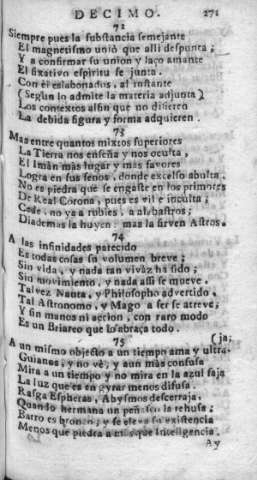 DECIMO. 271
72
Siempre pues la substancia semejante
El magnetismo uniò que alli despunta;
Y a confirmar su union y laço amante
El fixativo espiritu se junta.
Con èl eslabonados, al instante
(Segun lo admite la materia adjunta)
Los contextos alfin que no difieren
La debida figura y forma adquieren.
73
Mas entre quantos mixtos superiores
La Tierra nos enseña y nos oculta,
El Imàn màs lugar y màs favores
Logra en sus senos, donde excelso abulta.
No es piedra que se engaste en los primores
De Real Corona, pues es vil e inculta;
Cede no ya a rubies, a alabastros;
Diademas la huyen: mas la sirven Astros.
74
A las infinidades parecido
Es todas cosas su volumen breve;
Sin vida, y nada tan vivàz ha sido;
Sin movimiento, y nada assi se mueve.
Talvez Nauta, y Philosopho advertido,
Tal Astronomo, y Mago a ser se atreve;
Y sin manos ni accion, con raro modo
Es un Briareo que lo abraça todo.
75 (ja;
A un mismo objecto a un tiempo ama y ultra-
Guianas; y no vè, y aun màs confusa
Mira a un tiempo y no mira en la azul faja
La luz que es en gyrar menos difusa.
Rasga Espheras, Abysmos descerraja,
Quando hermana un peñasco la rehusa;
Barro es bronco; y se eleva su existencia
Menos que piedra a màs que Inteligencia.
Ay